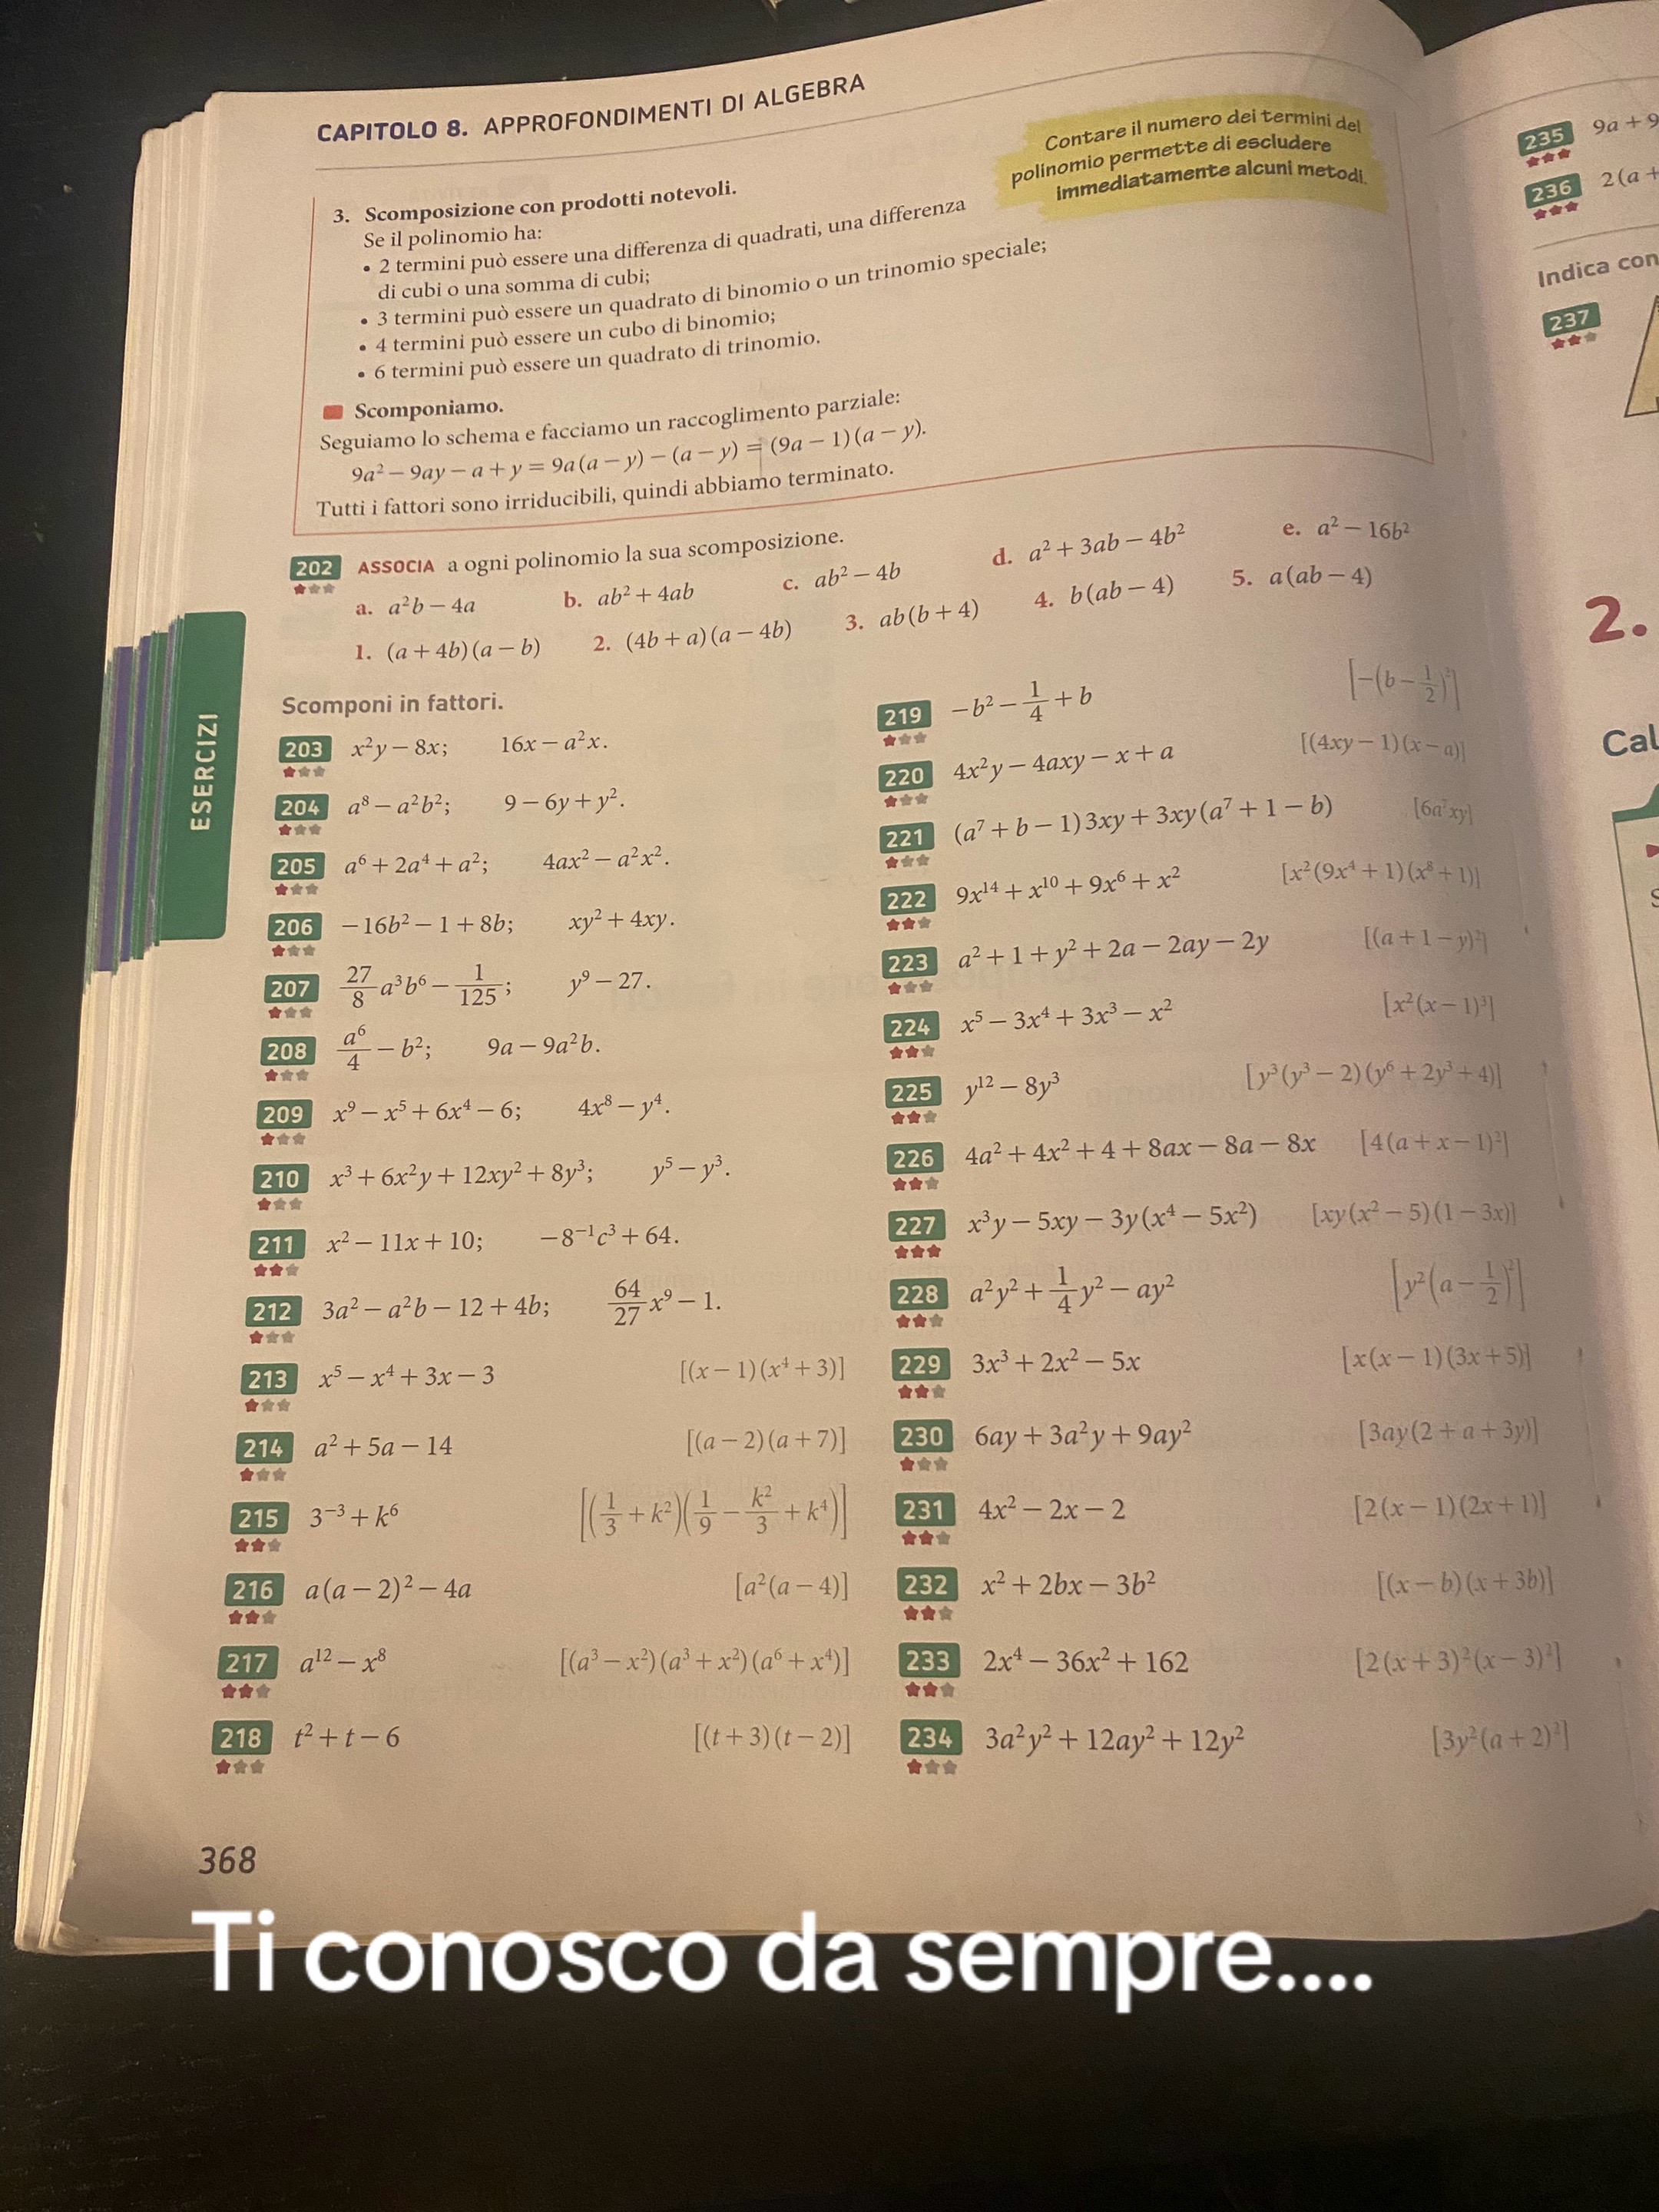 CAPITOLO 8. APPROFONDIMENTI DI ALGEBRA
Contare il numero dei termini del
polinomio permette di escludere
immediatamente alcuni metodi.
3. Scomposizione con prodotti notevoli.
Se il polinomio ha:
• 2 termini può essere una differenza di quadrati, una differenza
di cubi o una somma di cubi;
• 3 termini può essere un quadrato di binomio o un trinomio speciale;
• 4 termini può essere un cubo di binomio;
• 6 termini può essere un quadrato di trinomio.
Scomponiamo.
Seguiamo lo schema e facciamo un raccoglimento parziale:
9a² − 9ay − a + y = 9a(a − y) − (a − y) = (9a − 1)(a − y).
Tutti i fattori sono irriducibili, quindi abbiamo terminato.
202 ASSOCIA a ogni polinomio la sua scomposizione.
a. a²b − 4a b. ab² + 4ab c. ab² − 4b d. a² + 3ab − 4b² e. a² − 16b²
1. (a + 4b)(a − b) 2. (4b + a)(a − 4b) 3. ab(b + 4) 4. b(ab − 4) 5. a(ab − 4)
ESERCIZI
Scomponi in fattori.
203 x²y − 8x; 16x − a²x.
204 a⁸ − a²b²; 9 − 6y + y².
205 a⁶ + 2a⁴ + a²; 4ax² − a²x².
206 −16b² − 1 + 8b; xy² + 4xy.
207 27/8 a³b⁶ − 1/125; y⁹ − 27.
208 a⁶/4 − b²; 9a − 9a²b.
209 x⁹ − x⁵ + 6x⁴ − 6; 4x⁸ − y⁴.
210 x³ + 6x²y + 12xy² + 8y³; y⁵ − y³.
211 x² − 11x + 10; −8⁻¹c³ + 64.
212 3a² − a²b − 12 + 4b; 64/27 x⁹ − 1.
213 x⁵ − x⁴ + 3x − 3 [(x − 1)(x⁴ + 3)]
214 a² + 5a − 14 [(a − 2)(a + 7)]
215 3⁻³ + k⁶ [(1/3 + k²)(1/9 − k²/3 + k⁴)]
216 a(a − 2)² − 4a [a²(a − 4)]
217 a¹² − x⁸ [(a³ − x²)(a³ + x²)(a⁶ + x⁴)]
218 t² + t − 6 [(t + 3)(t − 2)]
219 −b² − 1/4 + b [−(b − 1/2)²]
220 4x²y − 4axy − x + a [(4xy − 1)(x − a)]
221 (a⁷ + b − 1)3xy + 3xy(a⁷ + 1 − b) [6a⁷xy]
222 9x¹⁴ + x¹⁰ + 9x⁶ + x² [x²(9x⁴ + 1)(x⁸ + 1)]
223 a² + 1 + y² + 2a − 2ay − 2y [(a + 1 − y)²]
224 x⁵ − 3x⁴ + 3x³ − x² [x²(x − 1)³]
225 y¹² − 8y³ [y³(y³ − 2)(y⁶ + 2y³ + 4)]
226 4a² + 4x² + 4 + 8ax − 8a − 8x [4(a + x − 1)²]
227 x³y − 5xy − 3y(x⁴ − 5x²) [xy(x² − 5)(1 − 3x)]
228 a²y² + 1/4 y² − ay² [y²(a − 1/2)²]
229 3x³ + 2x² − 5x [x(x − 1)(3x + 5)]
230 6ay + 3a²y + 9ay² [3ay(2 + a + 3y)]
231 4x² − 2x − 2 [2(x − 1)(2x + 1)]
232 x² + 2bx − 3b² [(x − b)(x + 3b)]
233 2x⁴ − 36x² + 162 [2(x + 3)²(x − 3)²]
234 3a²y² + 12ay² + 12y² [3y²(a + 2)²]
368
235 9a + 9
236 2(a +
Indica con
237
2.
Cal
Ti conosco da sempre....